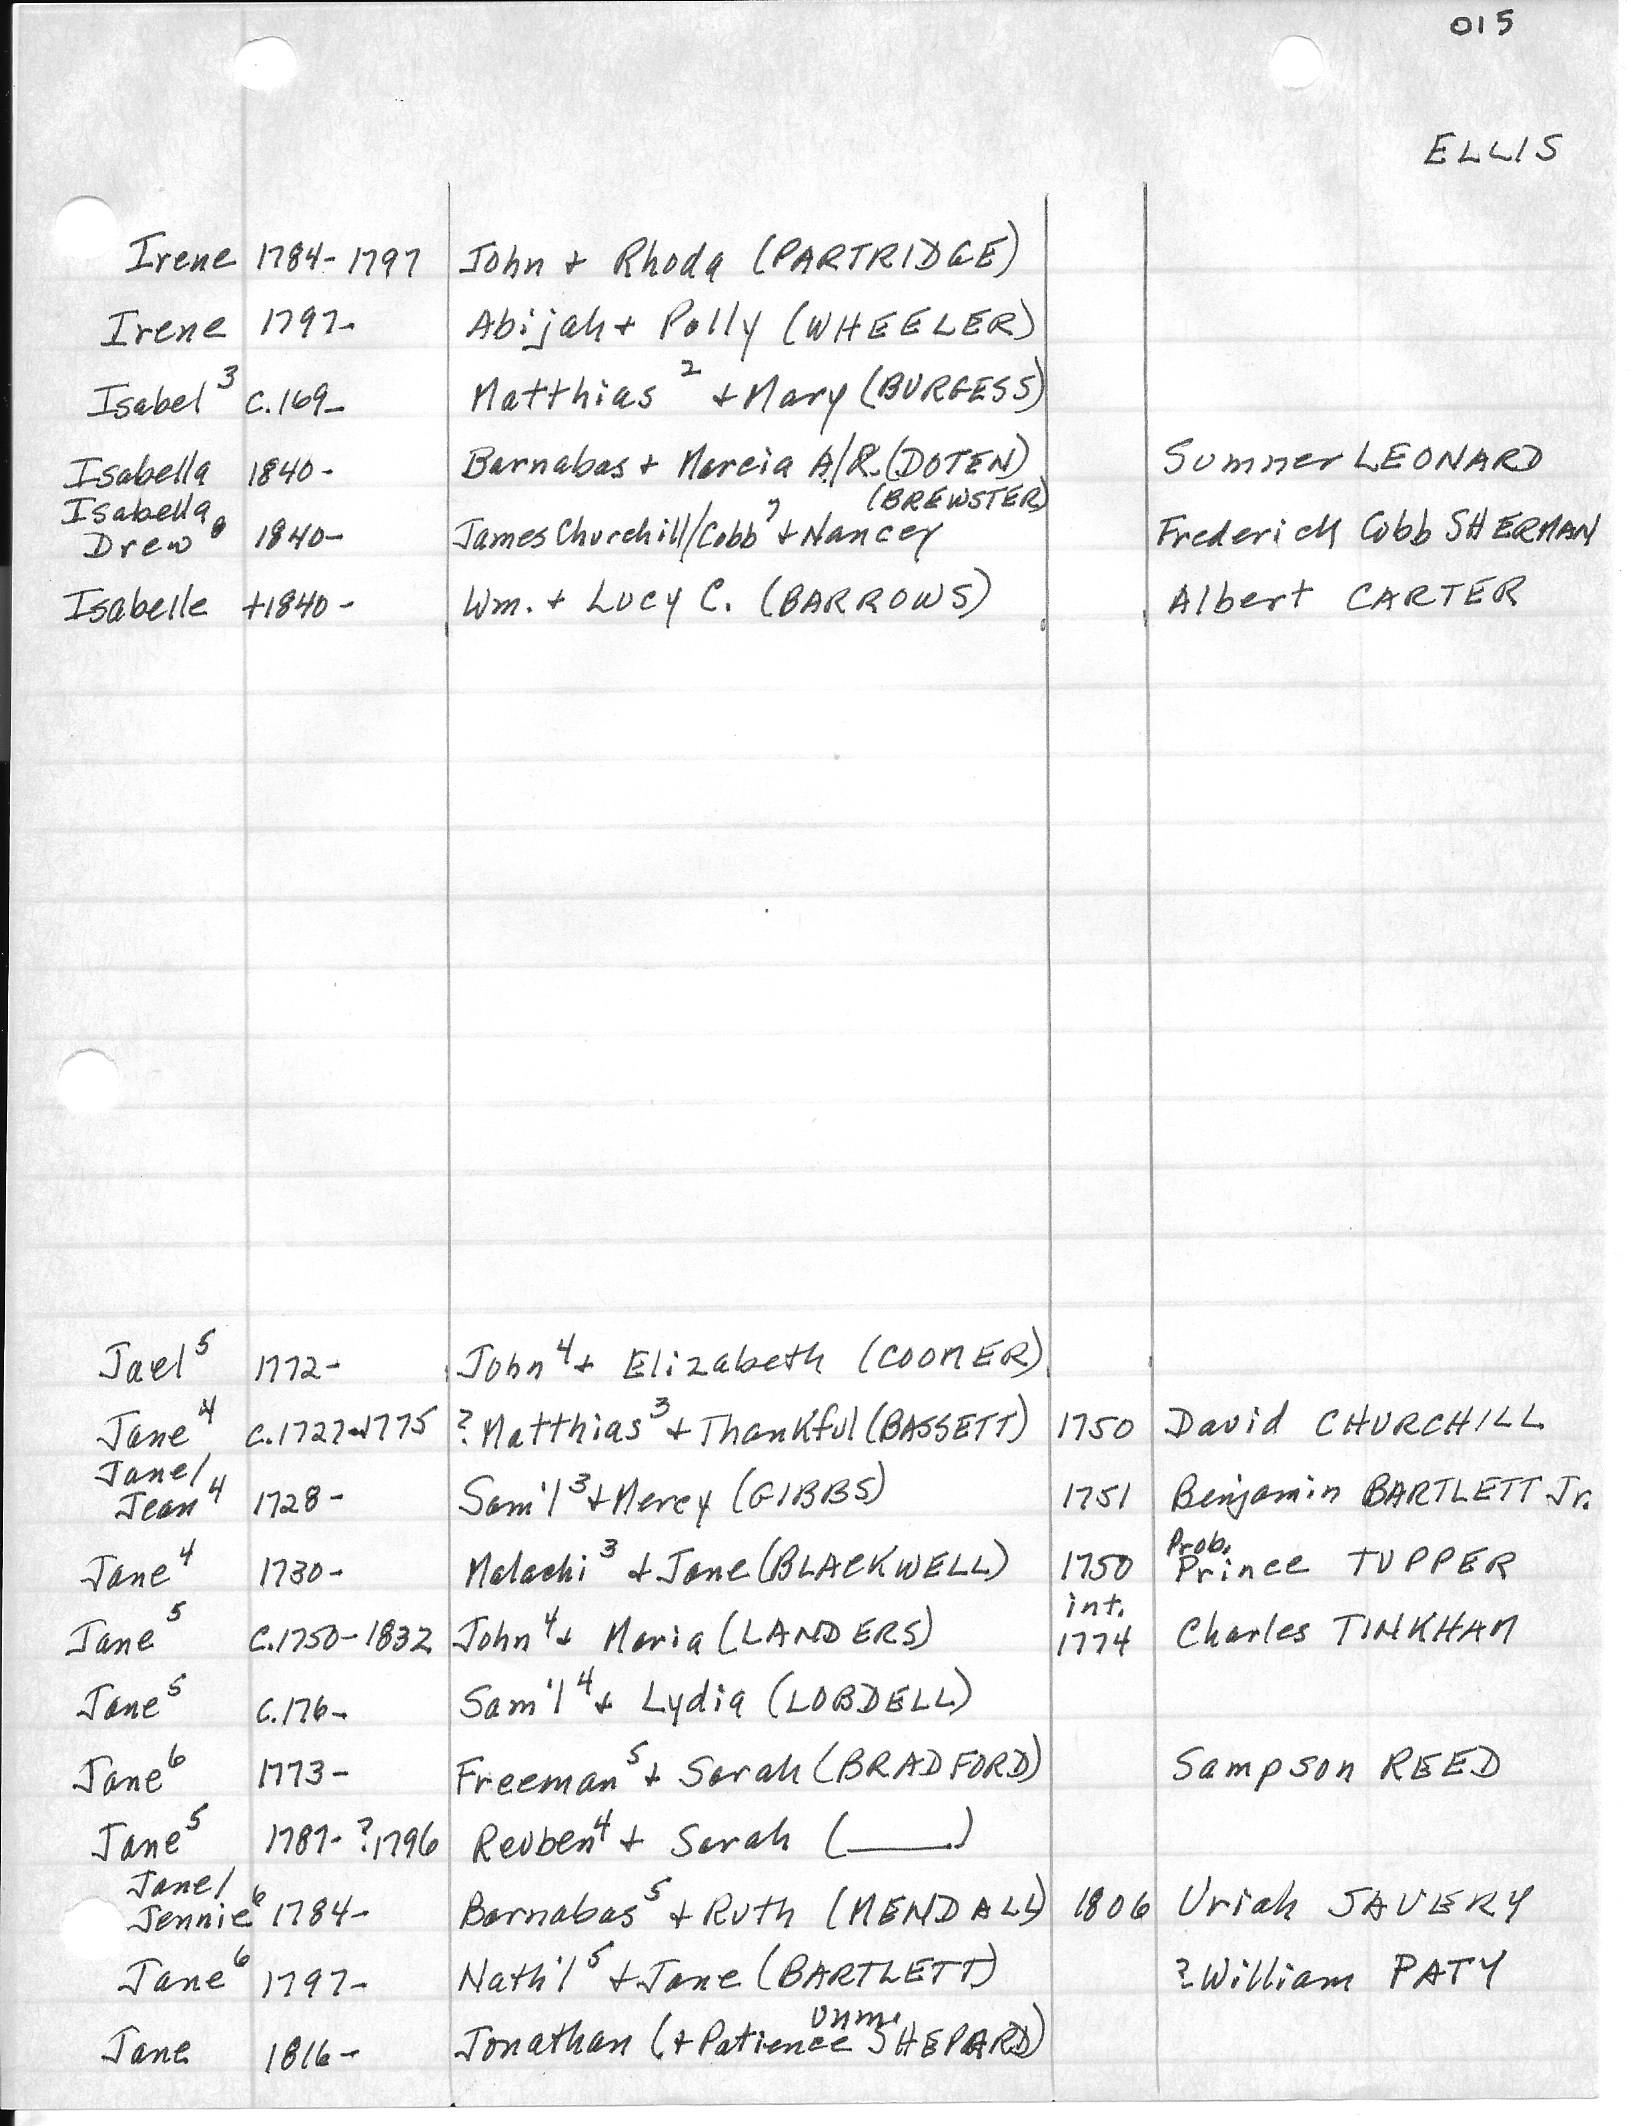 015
ELLIS
Irene 1784-1797 John + Rhoda (PARTRIDGE)
Irene 1797- Abijah + Polly (WHEELER)
Isabel³ c.169_ Matthias² + Mary (BURGESS)
Isabella 1840- Barnabas + Marcia A/R. (DOTEN) Sumner LEONARD
(BREWSTER)
Isabella
Drew⁸ 1840- James Churchill/Cobb⁷ + Nancy Frederick Cobb SHERMAN
Isabelle +1840- Wm. + Lucy C. (BARROWS) Albert CARTER
Jael⁵ 1772- John⁴ + Elizabeth (COOMER)
Jane⁴ c.1727-1775 ?Matthias³ + Thankful (BASSETT) 1750 David CHURCHILL
Jane/
Jean⁴ 1728- Sam'l³ + Mercy (GIBBS) 1751 Benjamin BARTLETT Jr.
Prob.
Jane⁴ 1730- Malachi³ + Jane (BLACKWELL) 1750 Prince TUPPER
int.
Jane⁵ c.1750-1832 John⁴ + Maria (LANDERS) 1774 Charles TINKHAM
Jane⁵ c.176_ Sam'l⁴ + Lydia (LOBDELL)
Jane⁶ 1773- Freeman⁵ + Sarah (BRADFORD) Sampson REED
Jane⁵ 1787-?1796 Reuben⁴ + Sarah (____)
Jane/
Jennie⁶ 1784- Barnabas⁵ + Ruth (MENDALL) 1806 Uriah SAVERY
Jane⁶ 1797- Nath'l⁵ + Jane (BARTLETT) ?William PATY
unm.
Jane 1816- Jonathan (+ Patience SHEPARD)